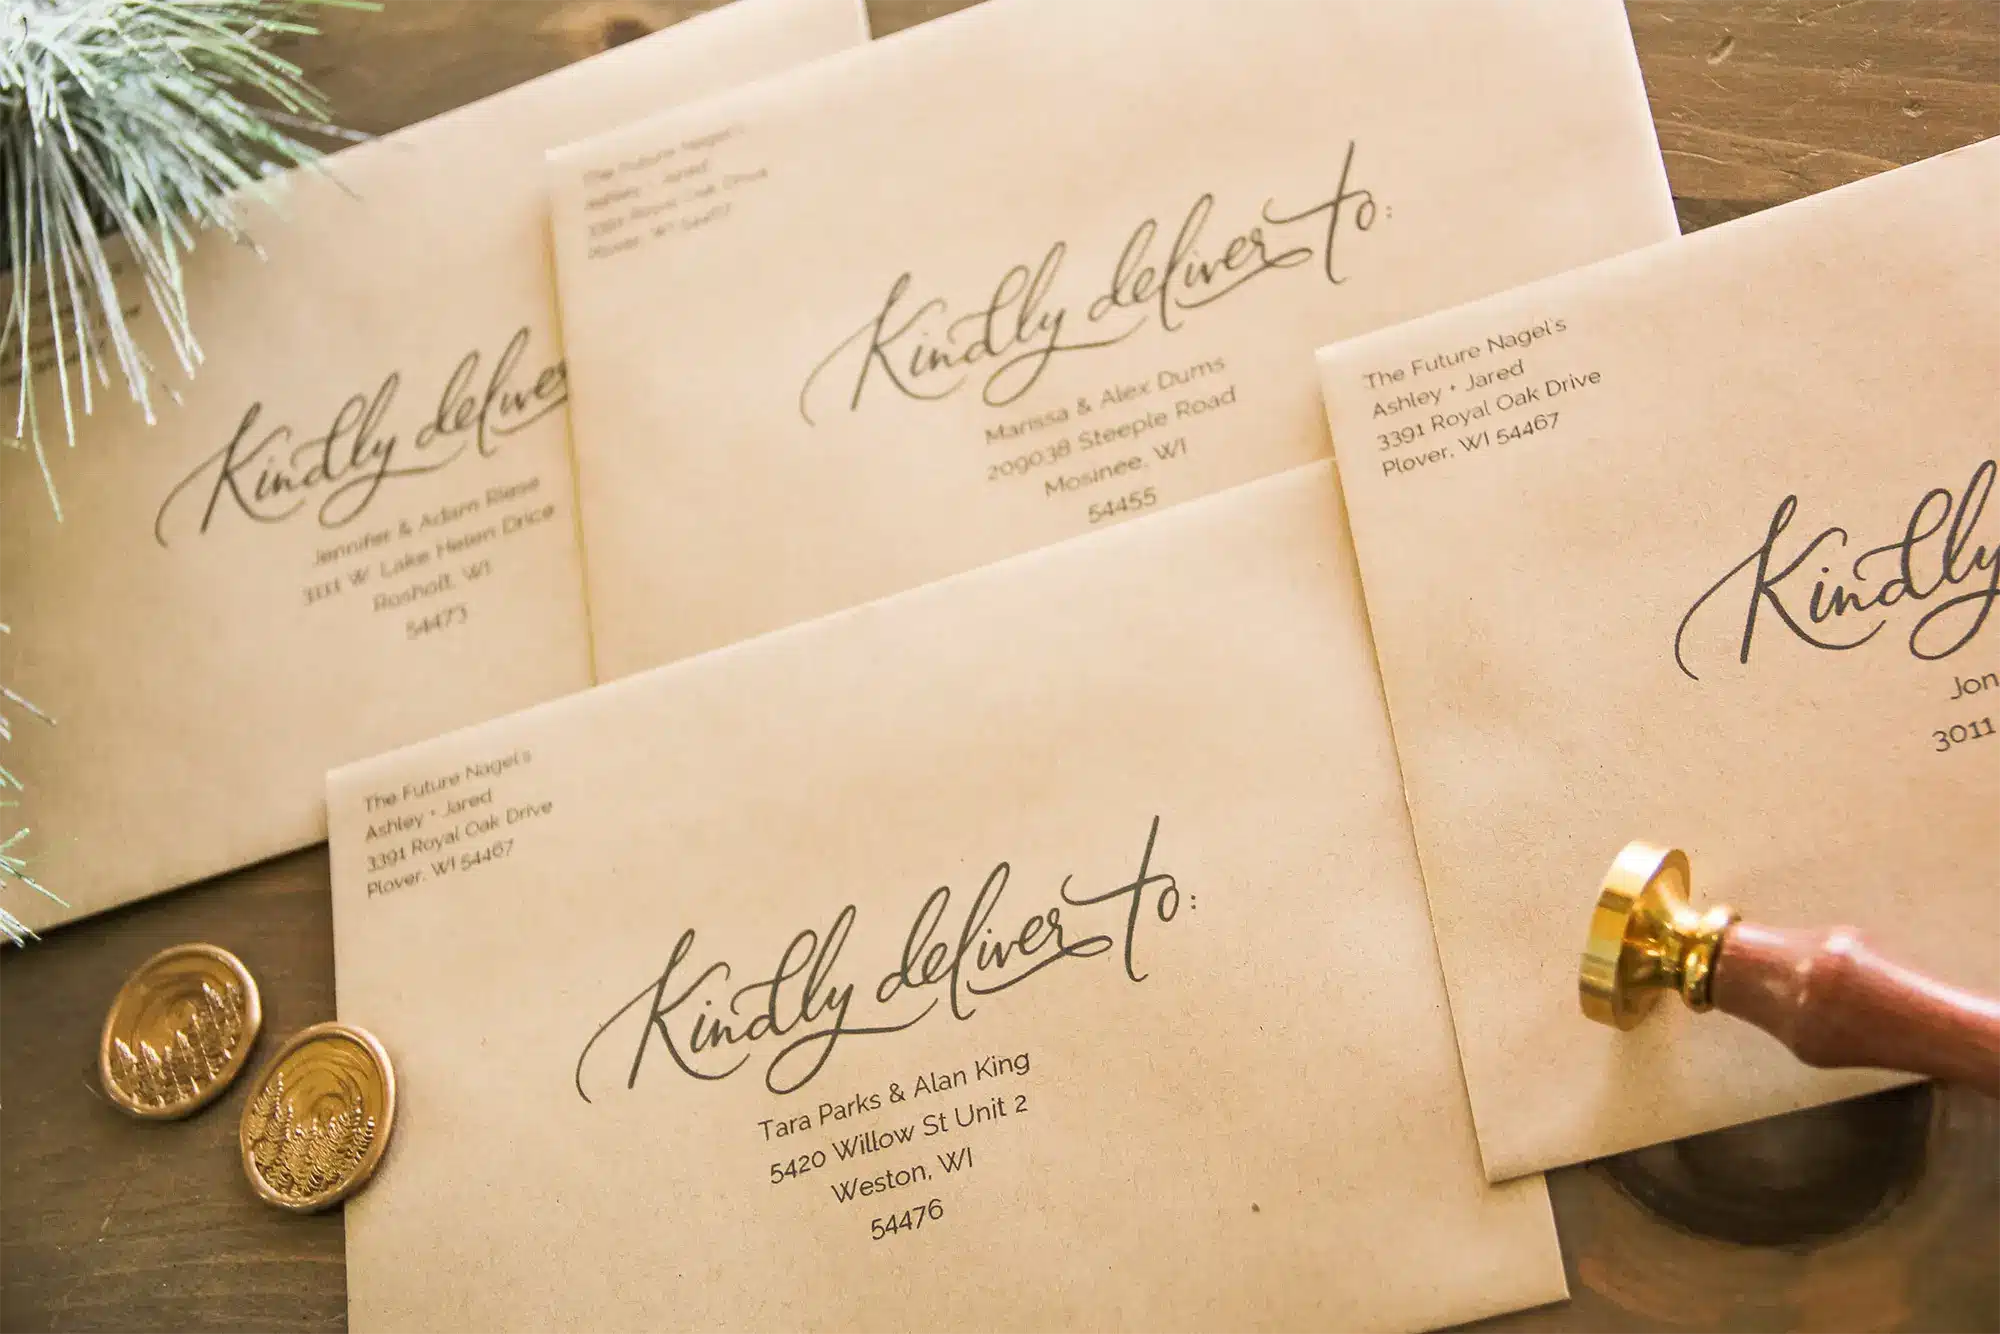 Kindly deliver
Jennifer & Adam Riese
3111 W. Lake Helen Drice
Rosholt, WI
54473
The Future Nagel's
Ashley + Jared
3391 Royal Oak Drive
Plover, WI 54467
Kindly deliver to:
Marissa & Alex Dums
209038 Steeple Road
Mosinee, WI
54455
The Future Nagel's
Ashley + Jared
3391 Royal Oak Drive
Plover, WI 54467
Kindly
Jon
3011
The Future Nagel's
Ashley + Jared
3391 Royal Oak Drive
Plover, WI 54467
Kindly deliver to:
Tara Parks & Alan King
5420 Willow St Unit 2
Weston, WI
54476